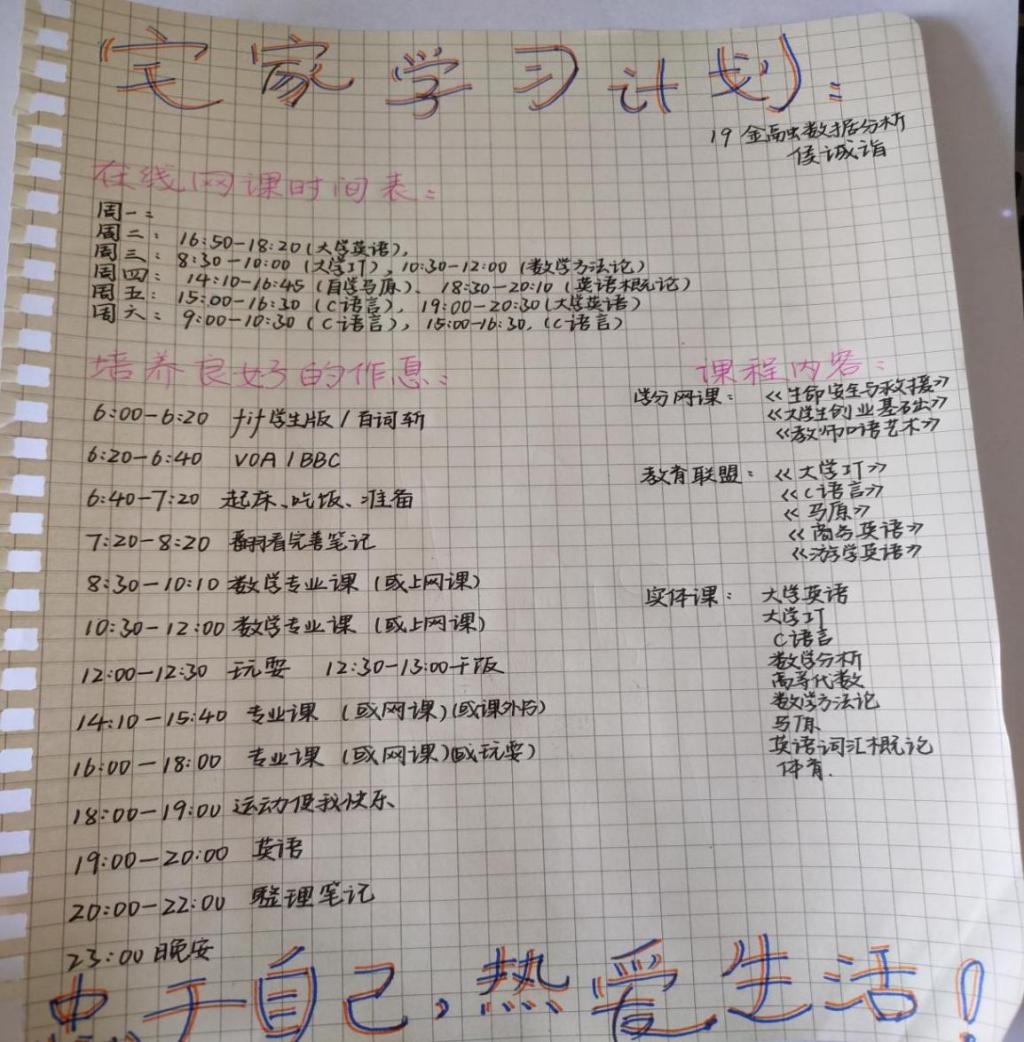 宅家学习计划：
19金融数据分析
侯诚诣
在线网课时间表：
周一：
周二：16:50-18:20(大学英语),
周三：8:30-10:00(大学IT), 10:30-12:00(数学方法论)
周四：14:10-16:45(自学马原)、18:30-20:10(英语概论)
周五：15:00-16:30(C语言), 19:00-20:30(大学英语)
周六：9:00-10:30(C语言), 15:00-16:30,(C语言)
培养良好的作息：
6:00-6:20 fif学生版/百词斩
6:20-6:40 VOA/BBC
6:40-7:20 起床、吃饭、准备
7:20-8:20 翻看完善笔记
8:30-10:10 数学专业课(或上网课)
10:30-12:00 数学专业课(或上网课)
12:00-12:30 玩耍 12:30-13:00干饭
14:10-15:40 专业课(或网课)(或课外书)
16:00-18:00 专业课(或网课)(或玩耍)
18:00-19:00 运动使我快乐、
19:00-20:00 英语
20:00-22:00 整理笔记
23:00 晚安
课程内容：
学分网课：《生命安全与救援》
《大学生创业基础》
《教师口语艺术》
教育联盟：《大学IT》
《C语言》
《马原》
《商务英语》
《游学英语》
实体课：大学英语
大学IT
C语言
数学分析
高等代数
数学方法论
马原
英语词汇概论
体育.
忠于自己,热爱生活!